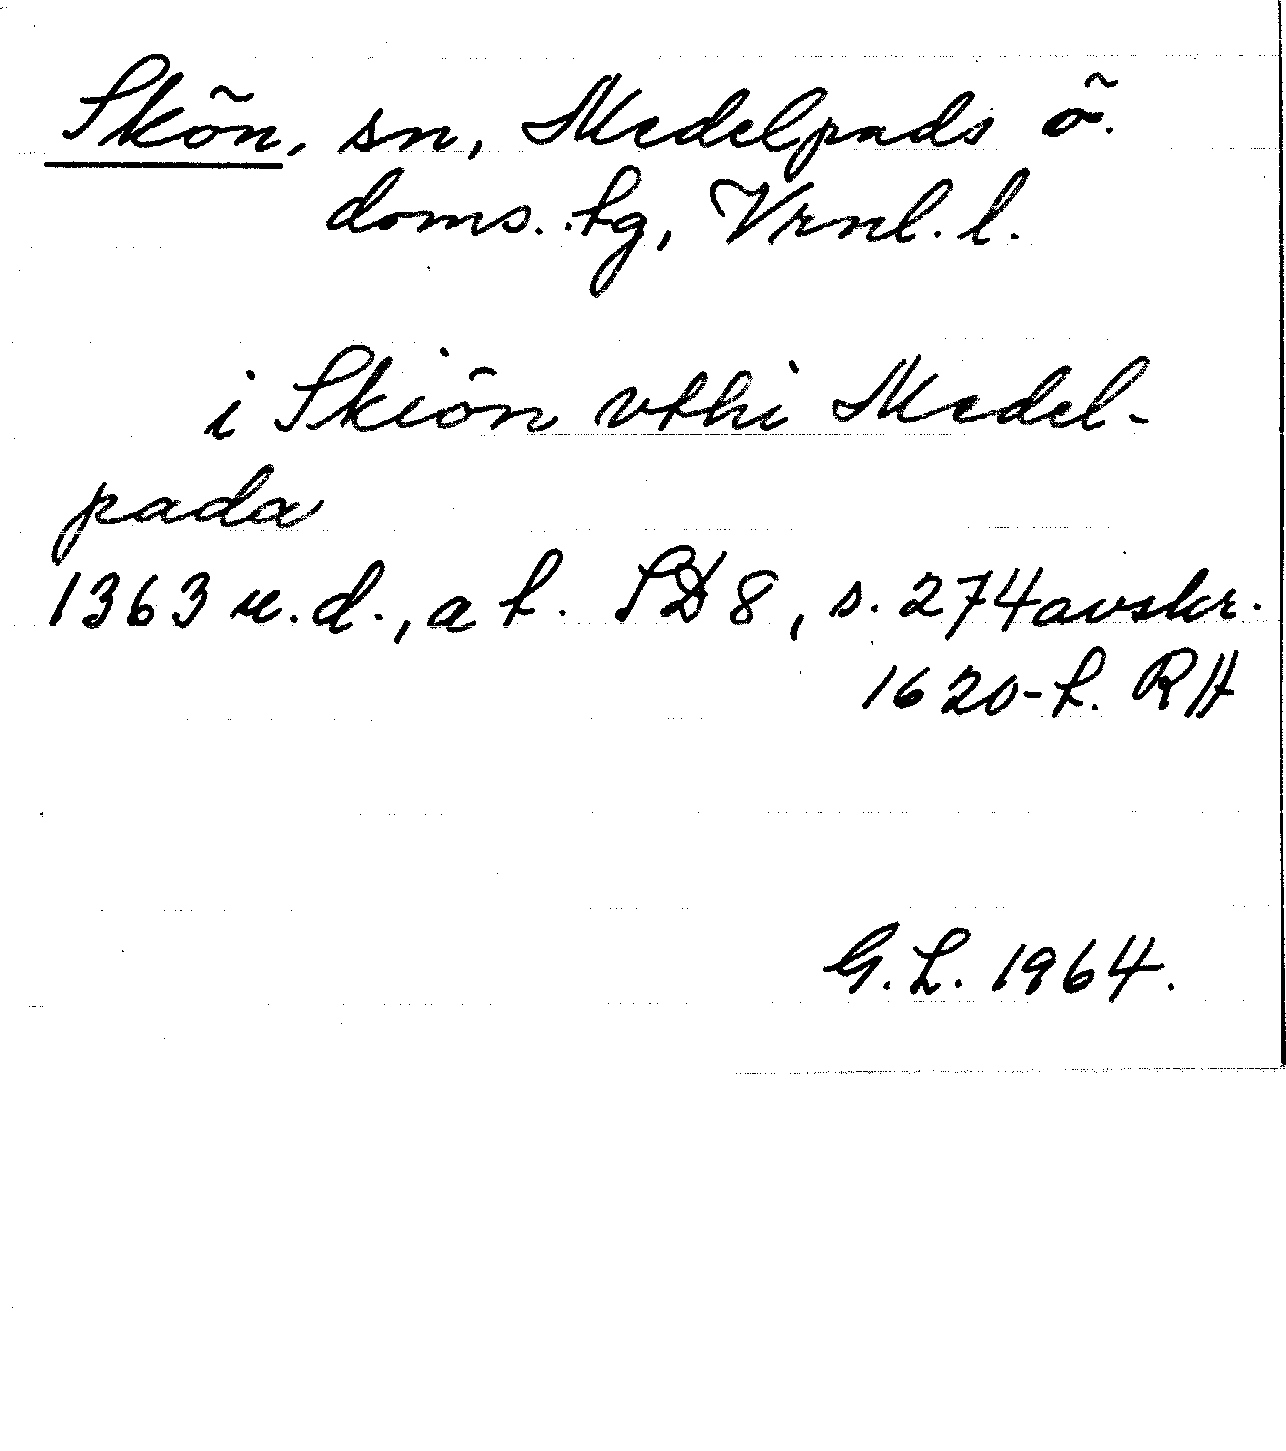 Skön, sn, Medelpads ö.
doms.tg, Vrnl. l.
i Skiön vthi Medel-
pada
1363 u.d., at. SD 8, s. 274 avskr.
1620-t. RA
G.L. 1964.